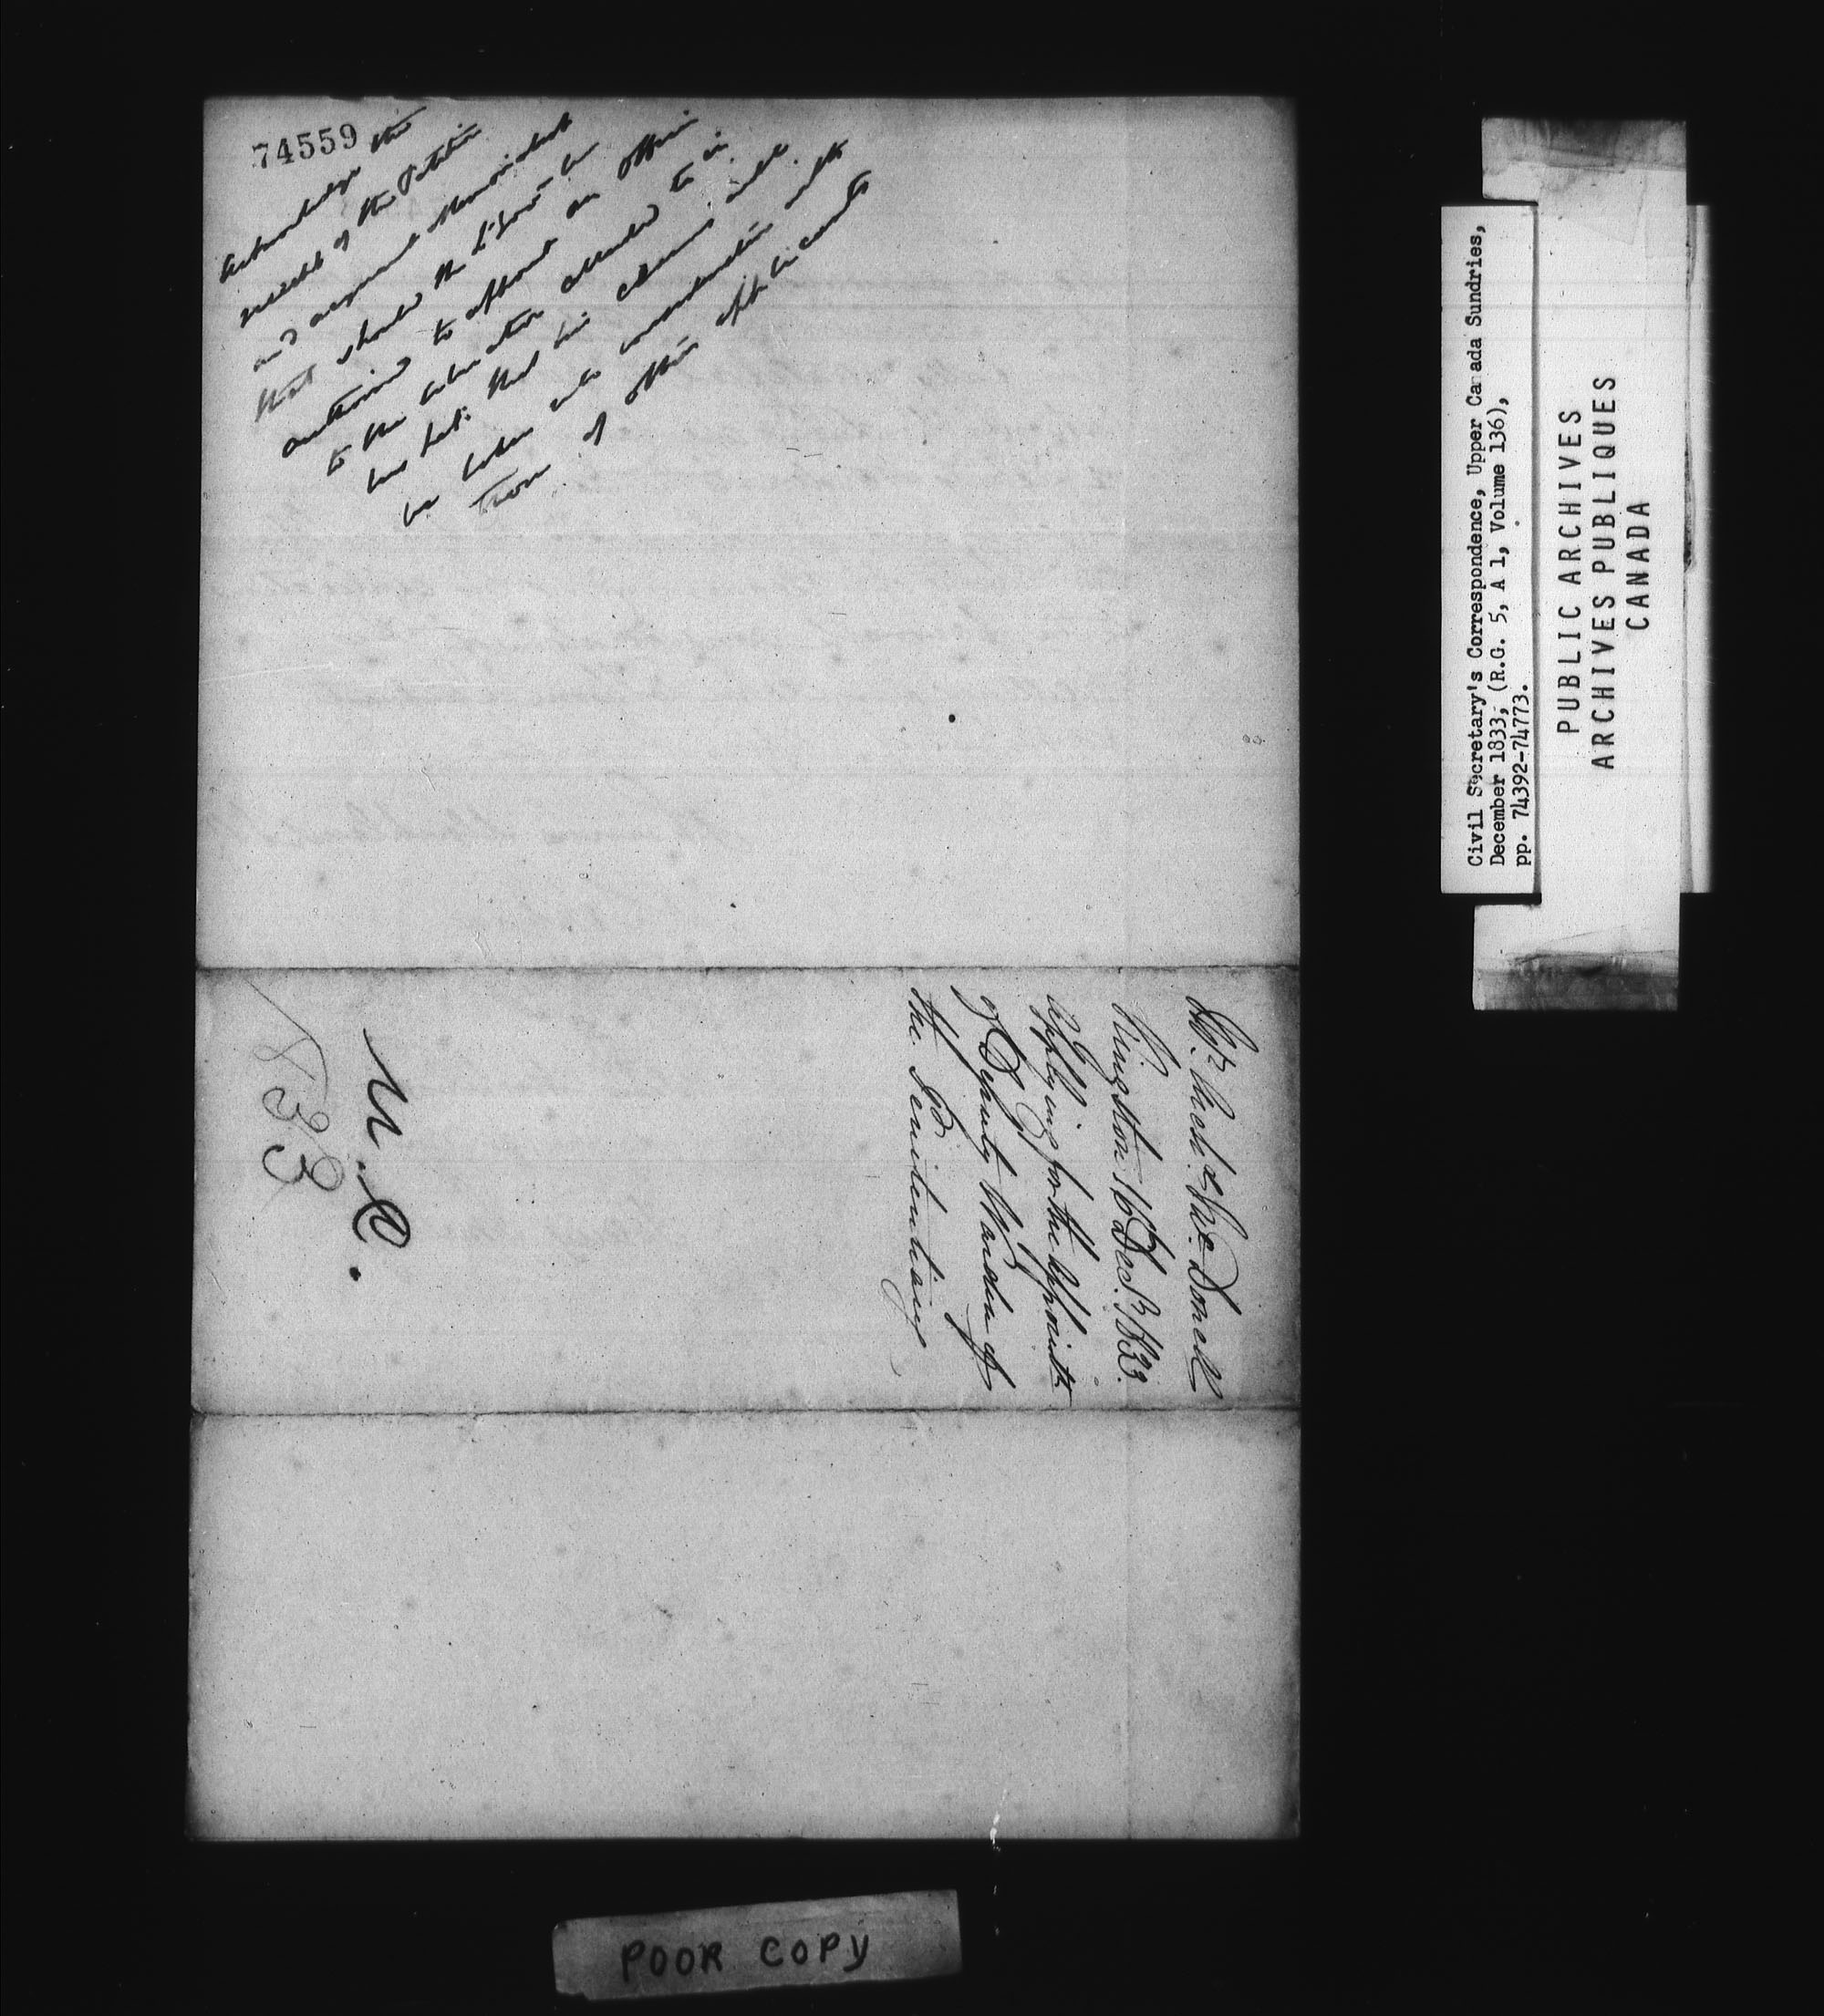 74559
Acknowledge the
receipt of the Petition
and acquaint Memorialist
that should the Lt. Govr be
authorised to appoint an officer
to the situation alluded to in
his letr. that his claims will
be taken into consideration with
those of other applicants
Mr. Archd. McDonell
Kingston 16 Decr. 1833.
Applying for the Appointt.
of Deputy Warden of
the Penitentiary
U.C.
1833
Civil Secretary's Correspondence, Upper Canada Sundries,
December 1833, (R.G. 5, A 1, Volume 136),
pp. 74392-74773.
PUBLIC ARCHIVES
ARCHIVES PUBLIQUES
CANADA
POOR COPY